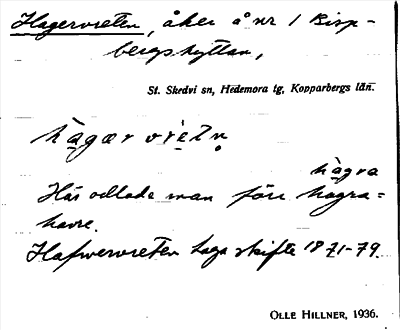 Hagervreten, åker å nr 1 Bisp-
bergshyttan,
St. Skedvi sn, Hedemora tg, Kopparbergs län.
hàgær vrètn̥
hàgra
Här odlade man förr hagra=
havre.
Hafwervreten laga skifte 1871-79.
OLLE HILLNER, 1936.